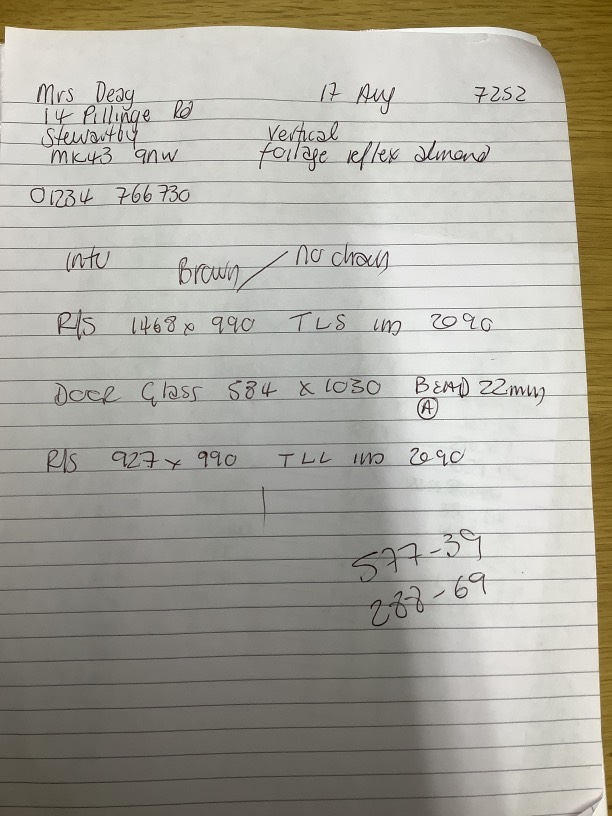 Mrs Deag 17 Aug 7252
14 Pillinge Rd
Stewartby vertical
MK43 9NW foilage reflex almond
01234 766730
intu Brown / no chain
R/S 1468 x 990 TLS IND 2090
DOOR Glass 584 x 1030 BEAD 22mm
A
R/S 927 x 990 TLL IND 2090
577-39
288-69